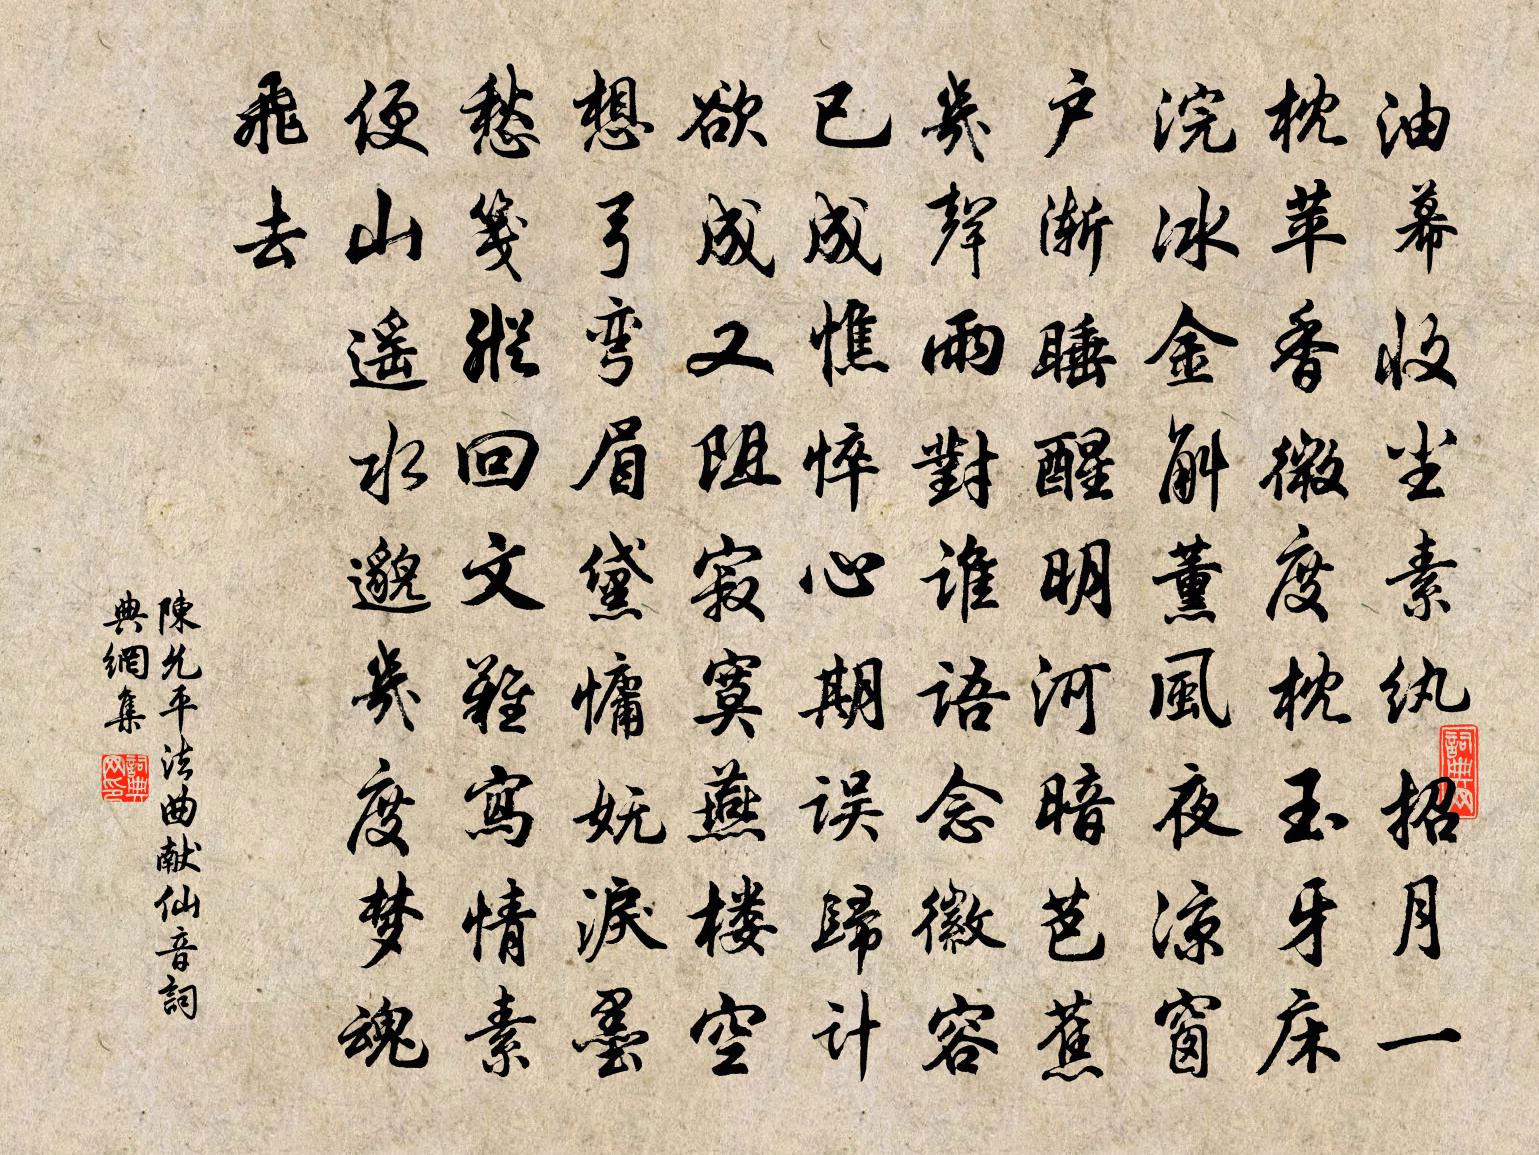 油幕收尘素纨招月一
枕苹香微度枕玉牙床
浣冰金斛薰风夜凉窗
户渐睡醒明河暗芭蕉
幾聲雨對谁语念徽容
已成憔悴心期误歸计
欲成又阻寂寞燕楼空
想弓弯眉黛慵妩淚墨
愁笺縱回文難寫情素
便山遥水邈幾度梦魂
飛去
陳允平法曲献仙音詞
典網集
詞典网
詞典网印